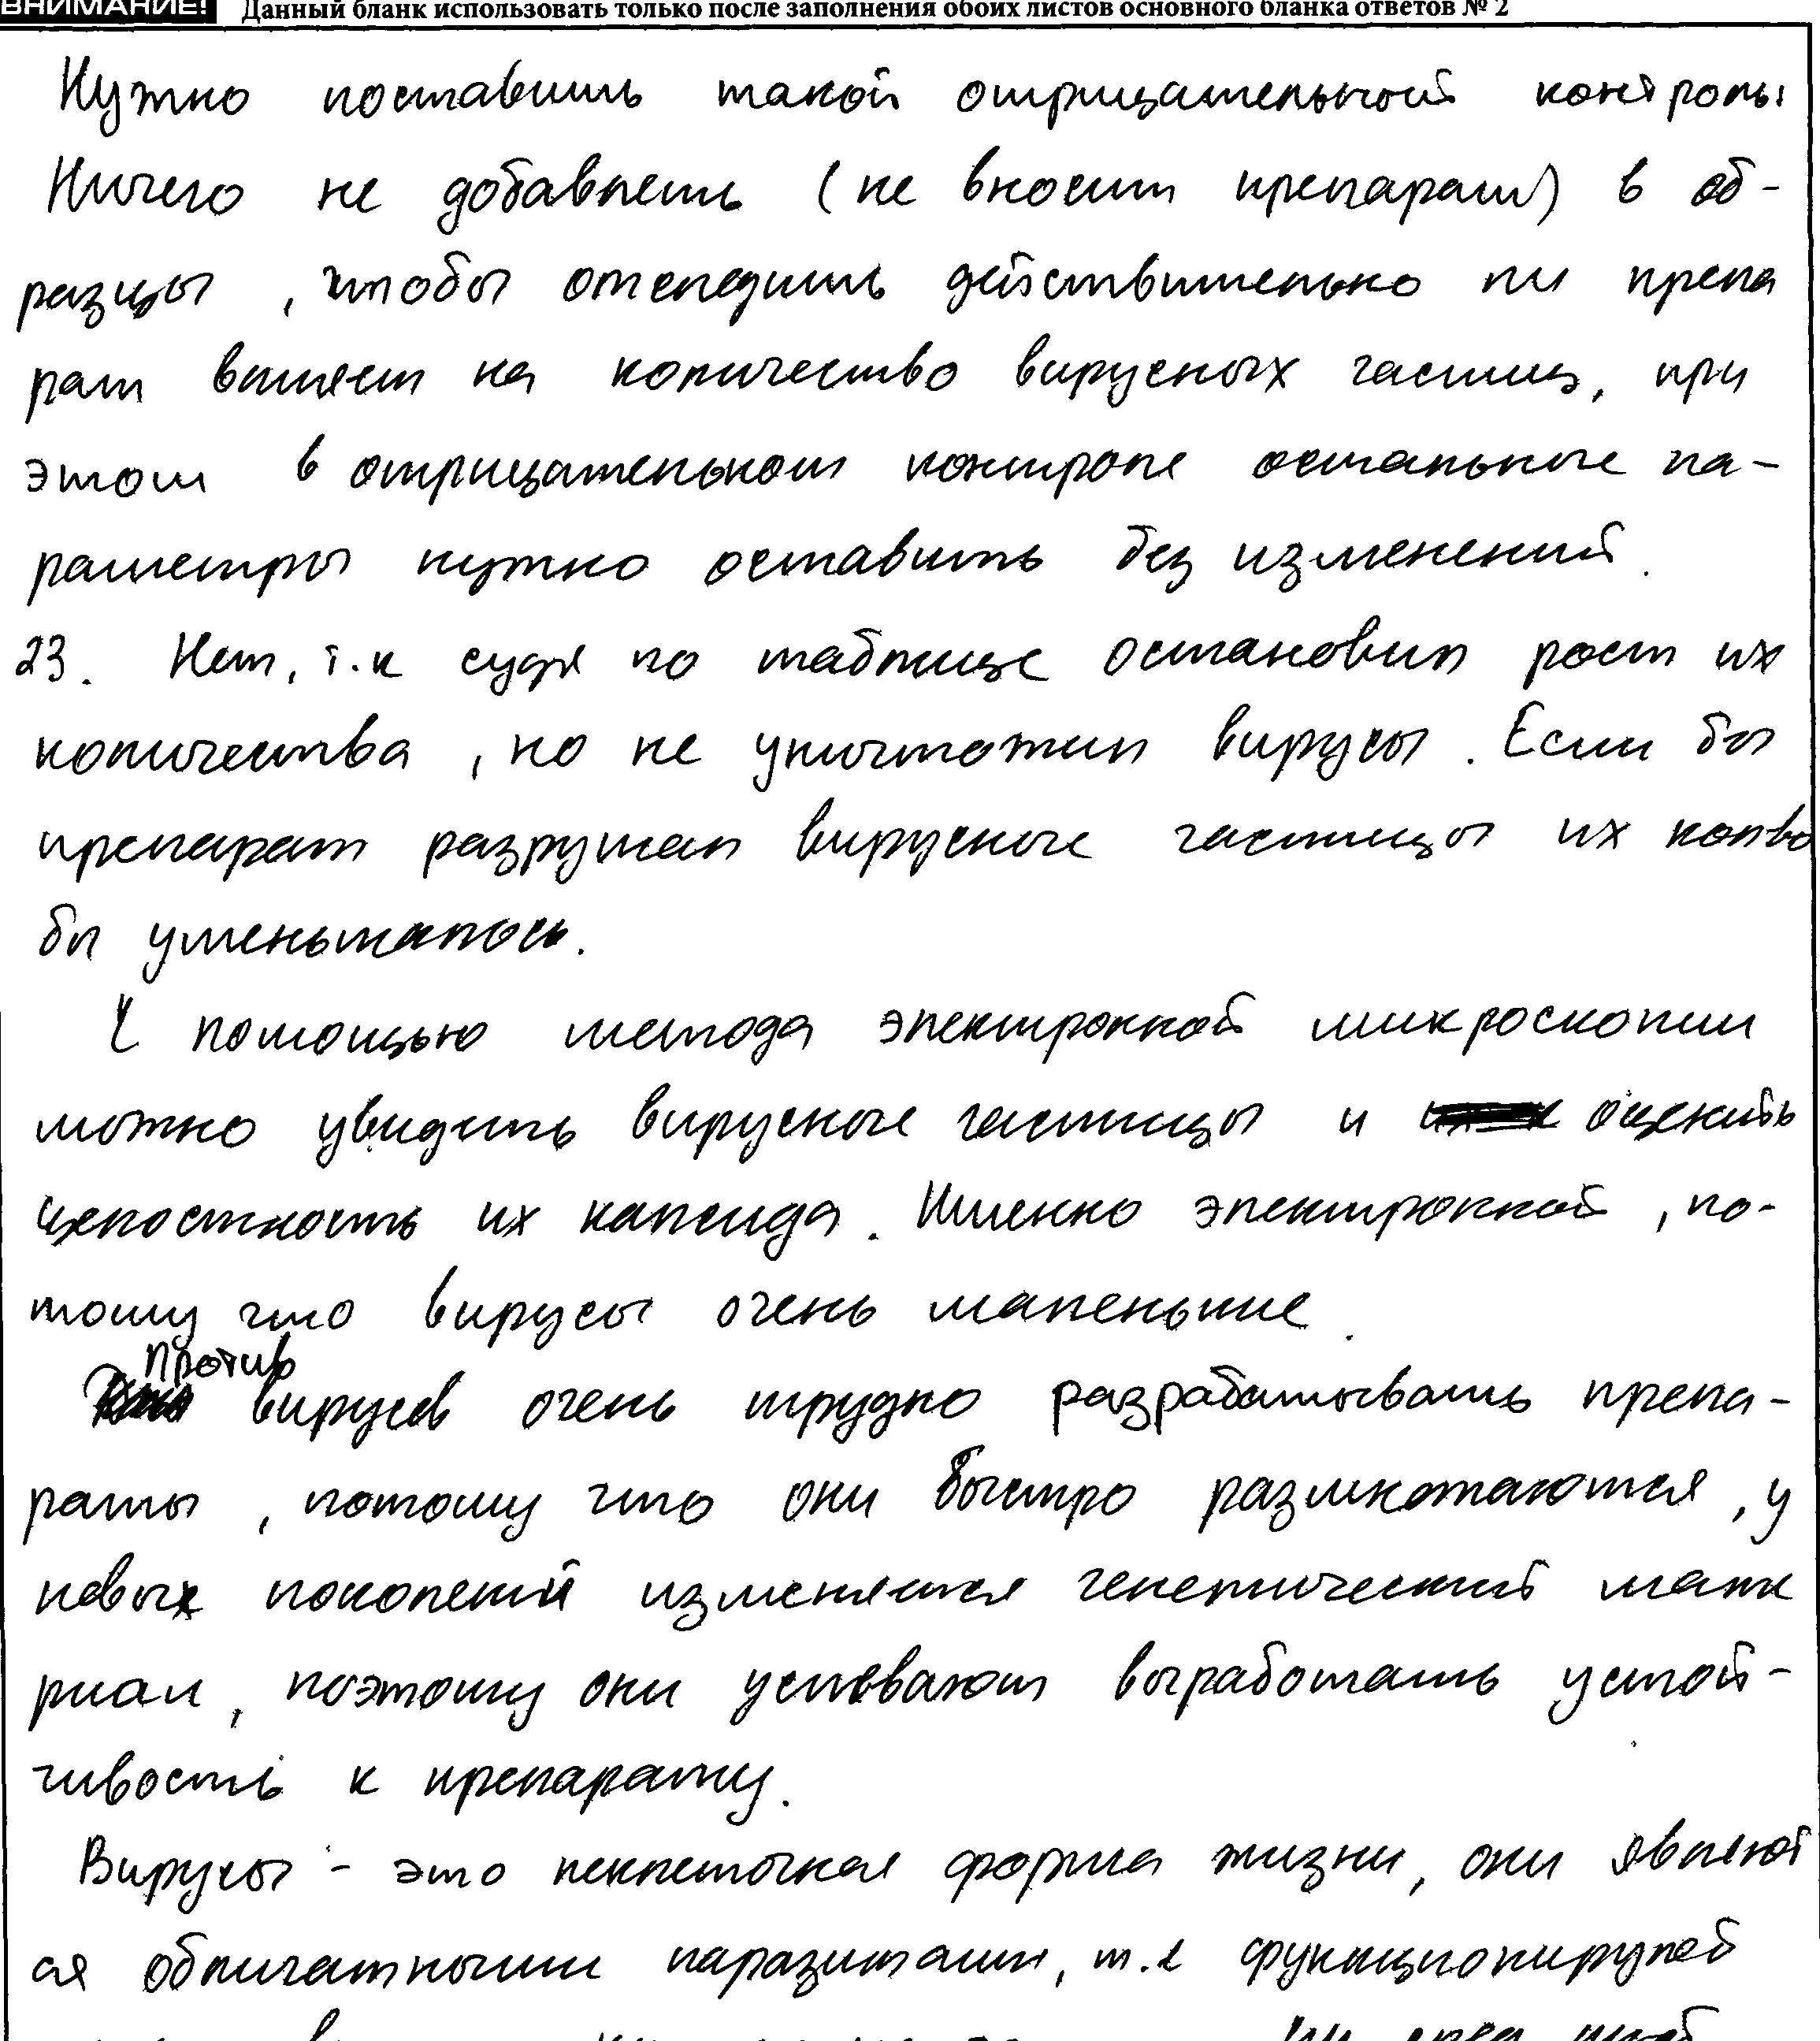 ВНИМАНИЕ! Данный бланк использовать только после заполнения обоих листов основного бланка ответов № 2
Нужно поставить такой отрицательный контроль:
Ничего не добавлять (не вносит препарат) в об-
разцы, чтобы отследить действительно ли препа
рат влияет на количество вирусных частиц, при
этом в отрицательном контроле остальные па-
раметры нужно оставить без изменений.
23. Нет, т.к судя по таблице остановил рост их
количества, но не уничтожил вирусы. Если бы
препарат разрушал вирусные частицы их колво
бы уменьшалось.
С помощью метода электронной микроскопии
можно увидить вирусные частицы и оценить
целостность их капсида. Именно электронной, по-
тому что вирусы очень маленькие.
Против
вирусов очень трудно разрабатывать препа-
раты, потому что они быстро размножаются, у
новых поколений изменяется генетический мате
риал, поэтому они успевают выработать устой-
чивость к препарату.
Вирусы - это неклеточная форма жизни, они являют
ся облигатными паразитами, т.к